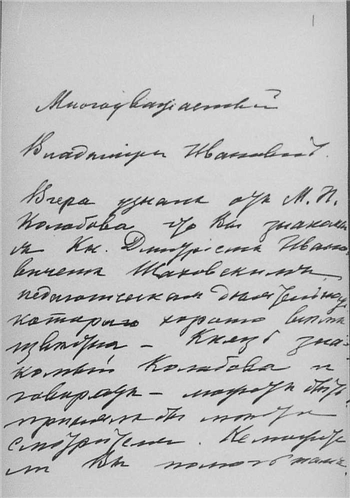 1
Многоуважаемый
Владимиръ Ивановичъ.
Вчера узнала отъ М. П.
Колобова что Вы знакомы
съ Кн. Дмитріемъ Ивано
вичемъ Шаховскимъ,
педагогическая
котораго хорошо всѣмъ
извѣстна – Князь зна
комый Колобова и
говорятъ – можетъ быть
принялъ бы мѣсто
смотрителя. Не можете
ли Вы